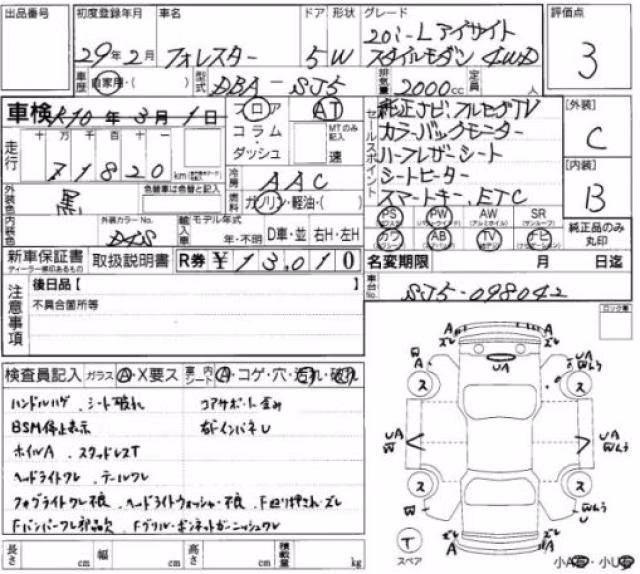 出品番号 初度登録年月 車名 ドア 形状 グレード 評価点
29年 2月 フォレスター 5W 20i-L アイサイト
スタイルモダン 4WD
3
車歴 自家用・( ) 型式 DBA-SJ5 排気量 2000cc 定員 人
車検 R10年 3月 1日 フロア AT セールスポイント 純正ナビ・フルセグTV [外装]
走行 十 万 千 百 十 一 コラム・ MTのみ記入 カラーバックモニター C
71820 km ダッシュ 速 ハーフレザーシート [内装]
外装色 黒 色替車は色替と記入 冷房 AAC シートヒーター B
燃料 ガソリン・軽油・( ) スマートキー、ETC
内装色 外装カラーNo. D4S 輸入車 モデル年式 PS PW AW SR 純正品のみ丸印
年・不明 D車・並 右H・左H AB TV ナビ
新車保証書 取扱説明書 R券 ¥13,010 名変期限 月 日迄
ディーラー捺印あるもの
注意事項 後日品【 車台No. SJ5-098042
不具合箇所等
検査員記入 ガラス A・X要ス 車内シート A・コゲ・穴・汚れ・破れ
ハンドルハゲ、シート破れ コアサポート歪み
BSM停止表示 右ドインパネU
ホイルA、スタッドレスT
ヘッドライトワレ、テールワレ
フォグライトワレ不良、ヘッドライトウォッシャー不良、F廻り押され・ズレ
Fバンパーワレ部品欠、Fグリル・ボンネットガーニッシュワレ
長さ cm 幅 cm 高さ cm 積載量 kg
A ズレ A ズレ
W A UA UA
ス ス
UA W UA Wんう
ス ス
W Wんう U
T スペア ズレ A ズレ A 小A 小U